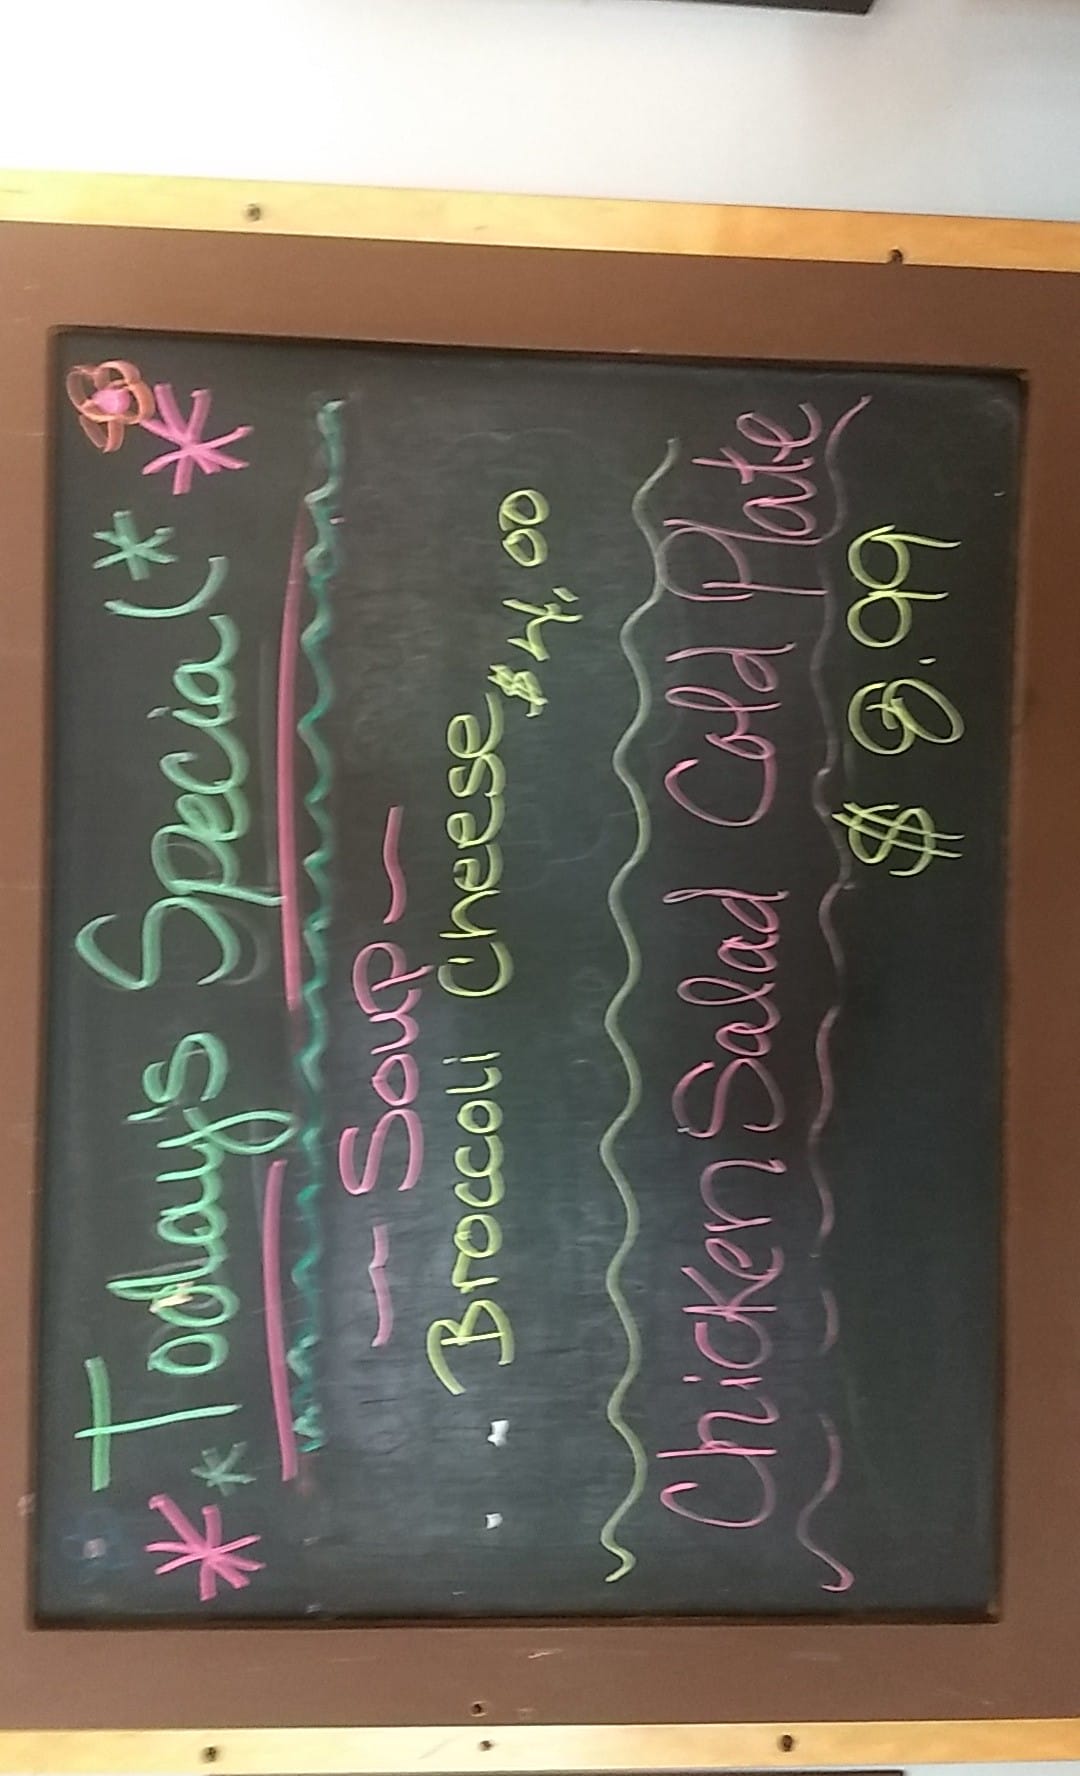 * * Today's Special * *
~ Soup ~
Broccoli Cheese
$4.00
Chicken Salad Cold Plate
$8.99